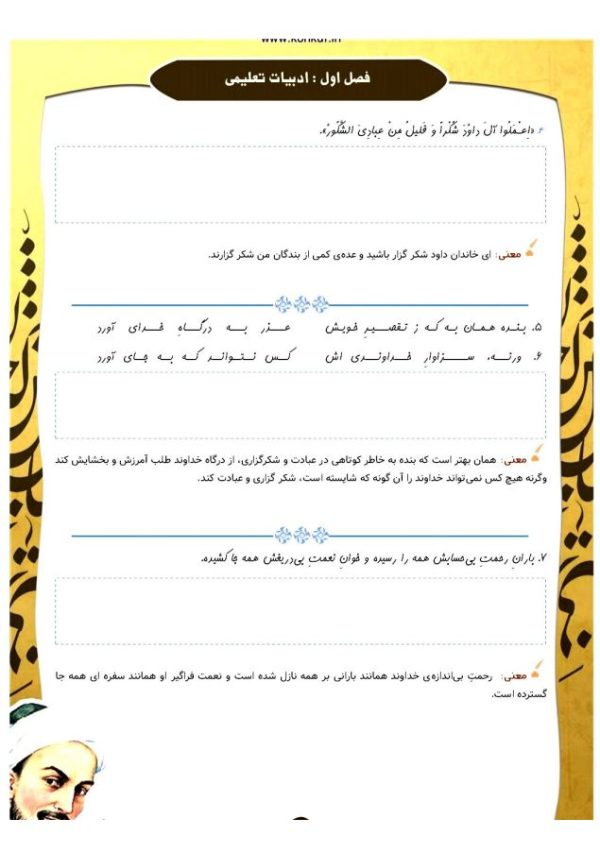 www.konkur.in
فصل اول : ادبیات تعلیمی
۴. «اِعْمَلُوا آلَ داوُدَ شُکْراً وَ قَلیلٌ مِنْ عِبادِیَ الشَّکُورُ».
معنی: ای خاندان داود شکر گزار باشید و عده‌ی کمی از بندگان من شکر گزارند.
۵. بنده همان به که ز تقصیرِ خویش عذر به درگاهِ خدای آورد
۶. ورنه، سزاوارِ خداوندی اش کس نتواند که به جای آورد
معنی: همان بهتر است که بنده به خاطر کوتاهی در عبادت و شکرگزاری، از درگاه خداوند طلب آمرزش و بخشایش کند
وگرنه هیچ کس نمی‌تواند خداوند را آن گونه که شایسته است، شکر گزاری و عبادت کند.
۷. بارانِ رحمتِ بی‌حسابش همه را رسیده و خوانِ نعمتِ بی‌دریغش همه جا کشیده.
معنی: رحمتِ بی‌اندازه‌ی خداوند همانند بارانی بر همه نازل شده است و نعمت فراگیر او همانند سفره ای همه جا
گسترده است.